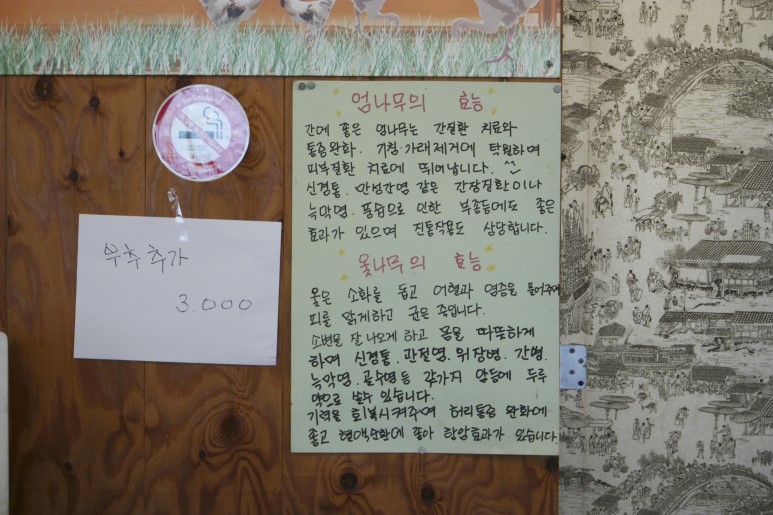 엄나무의 효능
간에 좋은 엄나무는 간질환 치료와
통증완화. 기침·가래제거에 탁월하며
피부질환 치료에 뛰어납니다. ^^
신경통. 만성간염 같은 간장질환이나
늑막염. 풍습으로 인한 부종등에도 좋은
효과가 있으며 진통작용도 상당합니다.
옻나무의 효능
옻은 소화를 돕고 어혈과 염증을 풀어주며
피를 맑게하고 균은 죽입니다.
소변을 잘 나오게 하고 몸을 따뜻하게
하며 신경통. 관절염. 위장병. 간병.
늑막염. 골수염등 갖가지 암등에 두루
약으로 쓸수 있습니다.
기력을 회복시켜주며 허리통증 완화에
좋고 혈액순환에 좋아 항암효과가 있습니다.
부추추가
3.000